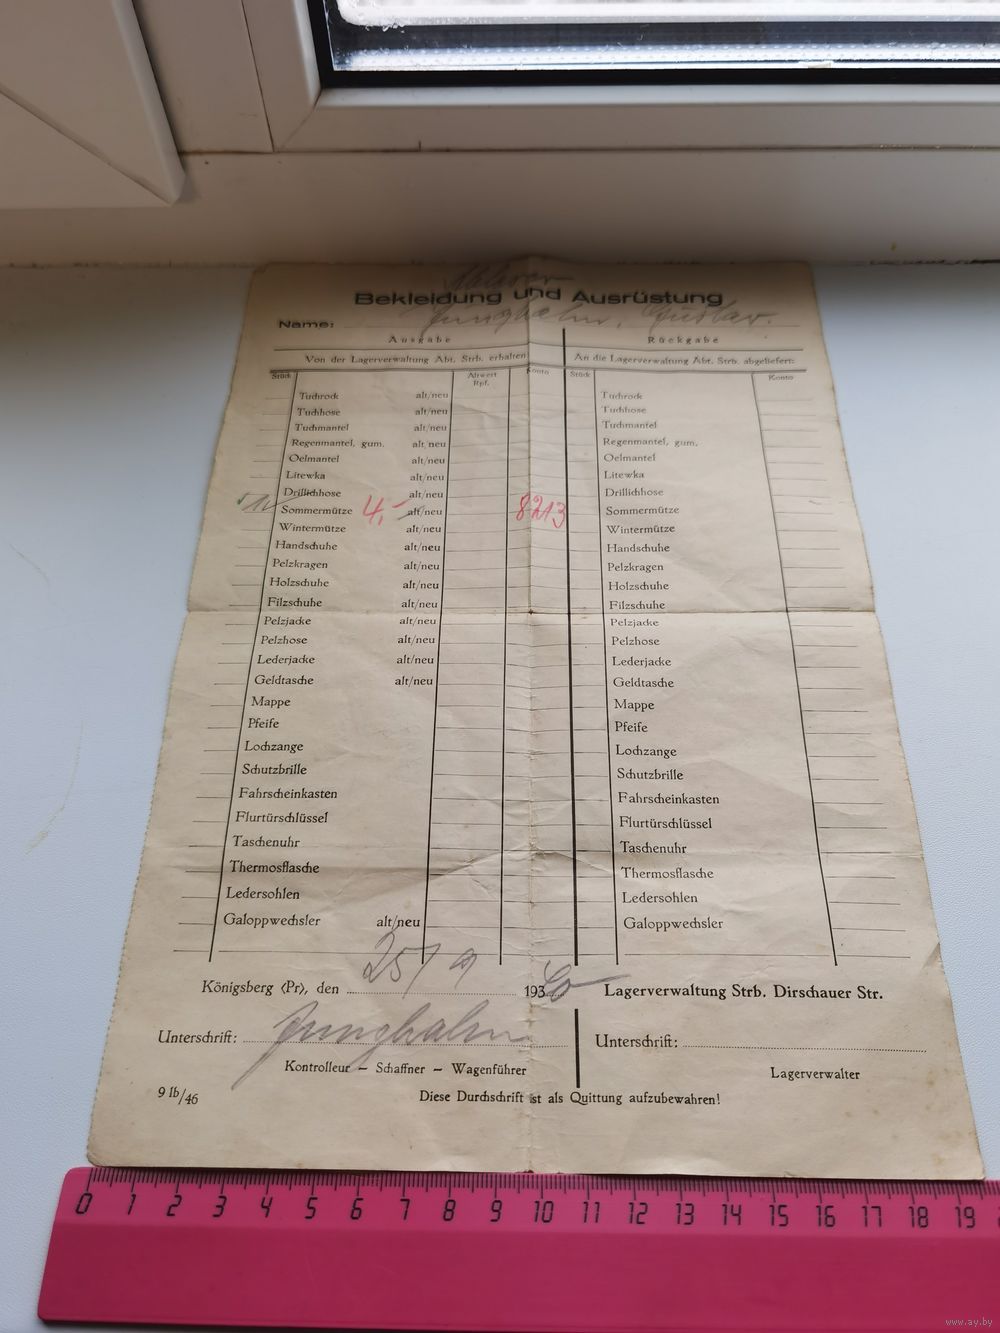 Bekleidung und Ausrüstung
Name: Junghahn, Gustav.
Ausgabe Rückgabe
Von der Lagerverwaltung Abt. Strb. erhalten: An die Lagerverwaltung Abt. Strb. abgeliefert:
Stück Altwert Rpf. Konto Stück Konto
Tuchrock alt/neu Tuchrock
Tuchhose alt/neu Tuchhose
Tuchmantel alt/neu Tuchmantel
Regenmantel, gum. alt/neu Regenmantel, gum.
Oelmantel alt/neu Oelmantel
Litewka alt/neu Litewka
Drillichhose alt/neu Drillichhose
Sommermütze 4,- alt/neu 8213 Sommermütze
Wintermütze alt/neu Wintermütze
Handschuhe alt/neu Handschuhe
Pelzkragen alt/neu Pelzkragen
Holzschuhe alt/neu Holzschuhe
Filzschuhe alt/neu Filzschuhe
Pelzjacke alt/neu Pelzjacke
Pelzhose alt/neu Pelzhose
Lederjacke alt/neu Lederjacke
Geldtasche alt/neu Geldtasche
Mappe Mappe
Pfeife Pfeife
Lochzange Lochzange
Schutzbrille Schutzbrille
Fahrscheinkasten Fahrscheinkasten
Flurtürschlüssel Flurtürschlüssel
Taschenuhr Taschenuhr
Thermosflasche Thermosflasche
Ledersohlen Ledersohlen
Galoppwechsler alt/neu Galoppwechsler
Königsberg (Pr), den 25/9 193 40 Lagerverwaltung Strb. Dirschauer Str.
Unterschrift: Junghahn Unterschrift:
Kontrolleur – Schaffner – Wagenführer Lagerverwalter
9 Ib/46 Diese Durchschrift ist als Quittung aufzubewahren!
0 1 2 3 4 5 6 7 8 9 10 11 12 13 14 15 16 17 18 19
www.ay.by